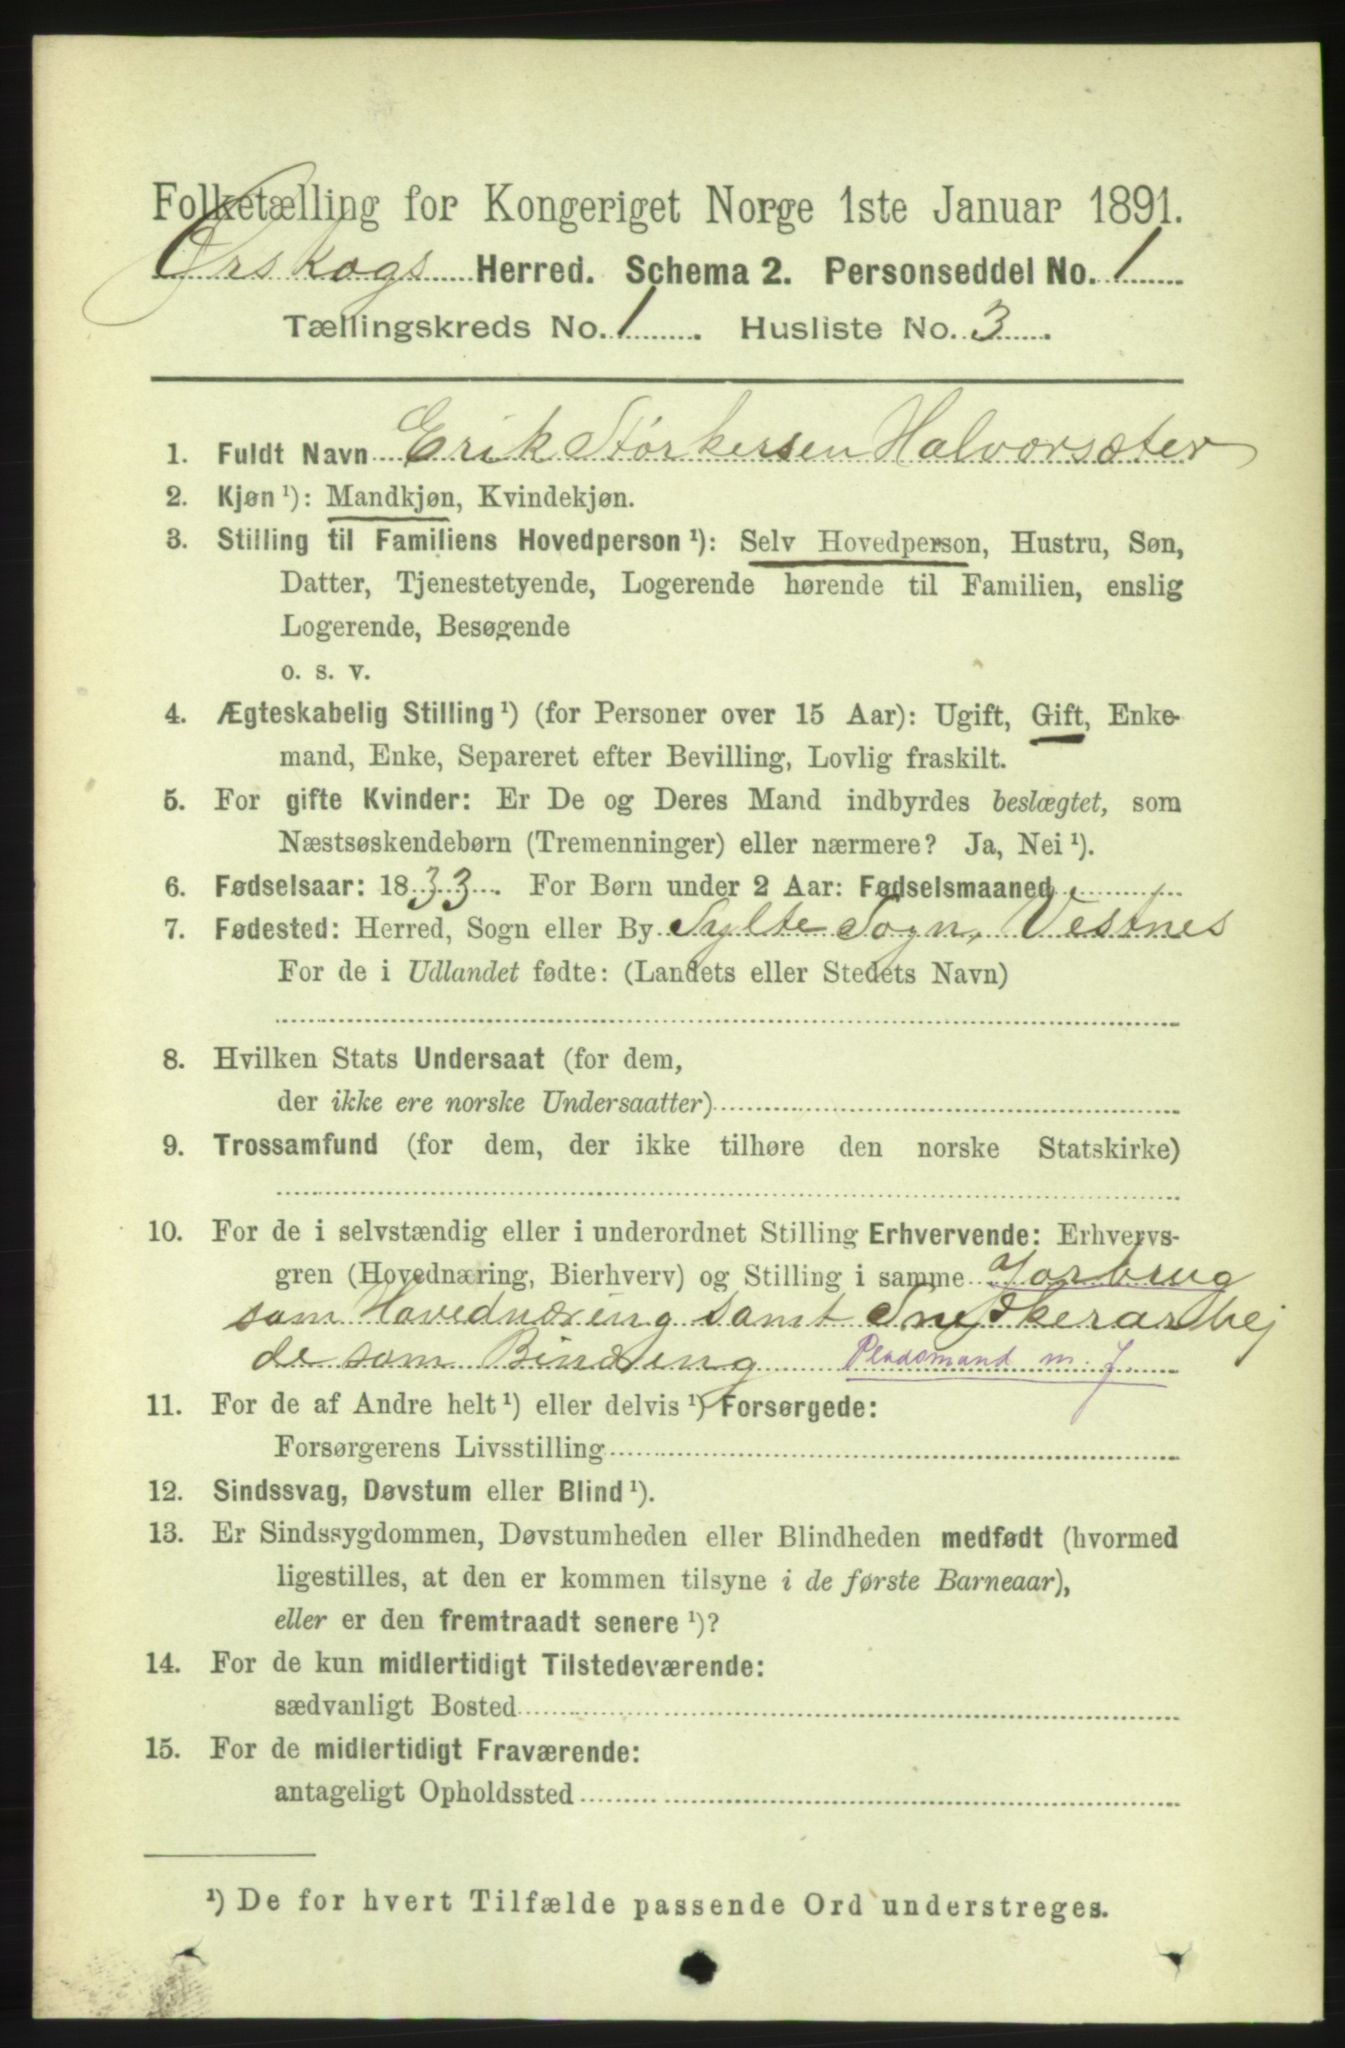 Folketælling for Kongeriget Norge 1ste Januar 1891.
Ørskogs Herred. Schema 2. Personseddel No. 1
Tællingskreds No. 1. Husliste No. 3.
1. Fuldt Navn Erik Størkersen Halvorsæter
2. Kjøn ¹): Mandkjøn, Kvindekjøn.
3. Stilling til Familiens Hovedperson ¹): Selv Hovedperson, Hustru, Søn,
Datter, Tjenestetyende, Logerende hørende til Familien, enslig
Logerende, Besøgende
o. s. v.
4. Ægteskabelig Stilling ¹) (for Personer over 15 Aar): Ugift, Gift, Enke-
mand, Enke, Separeret efter Bevilling, Lovlig fraskilt.
5. For gifte Kvinder: Er De og Deres Mand indbyrdes beslægtet, som
Næstsøskendebørn (Tremenninger) eller nærmere? Ja, Nei ¹).
6. Fødselsaar: 1833. For Børn under 2 Aar: Fødselsmaaned
7. Fødested: Herred, Sogn eller By Sylte Sogn, Vestnes
For de i Udlandet fødte: (Landets eller Stedets Navn)
8. Hvilken Stats Undersaat (for dem,
der ikke ere norske Undersaatter)
9. Trossamfund (for dem, der ikke tilhøre den norske Statskirke)
10. For de i selvstændig eller i underordnet Stilling Erhvervende: Erhvervs-
gren (Hovednæring, Bierhverv) og Stilling i samme Jorbrug
som Hovednæring samt Snedkerarbej
de som Binæring Pladsmand m. J.
11. For de af Andre helt ¹) eller delvis ¹) Forsørgede:
Forsørgerens Livsstilling
12. Sindssvag, Døvstum eller Blind ¹).
13. Er Sindssygdommen, Døvstumheden eller Blindheden medfødt (hvormed
ligestilles, at den er kommen tilsyne i de første Barneaar),
eller er den fremtraadt senere ¹)?
14. For de kun midlertidigt Tilstedeværende:
sædvanligt Bosted
15. For de midlertidigt Fraværende:
antageligt Opholdssted
¹) De for hvert Tilfælde passende Ord understreges.